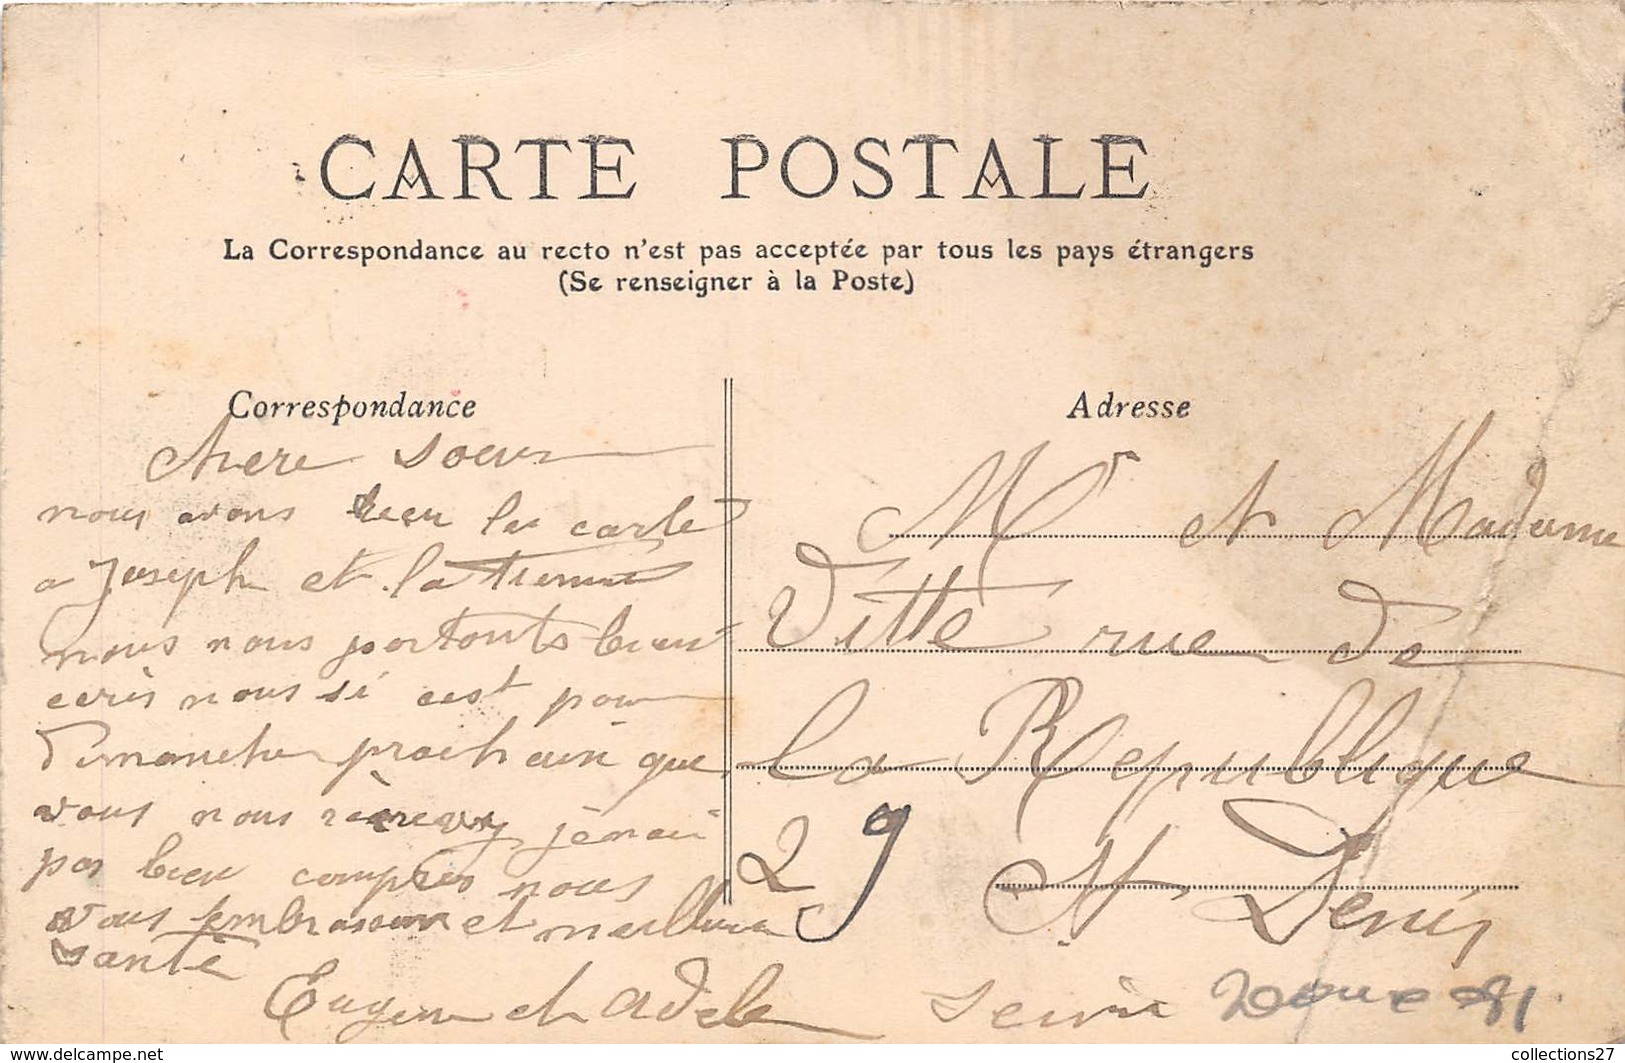 CARTE POSTALE
La Correspondance au recto n'est pas acceptée par tous les pays étrangers
(Se renseigner à la Poste)
Correspondance
chere soeur
nous avons la carte
a Joseph et la tienne
nous nous portonts bien
ecris nous si cest pour
Dimanche prochain que
vous nous jénai
pas bien compris nous
vous embrasson et meilleure
santé
Eugene et Adele
Adresse
Mr et Madame
Vitte rue de
la Republique
29 St Denis
Seine
www.delcampe.net
collections27